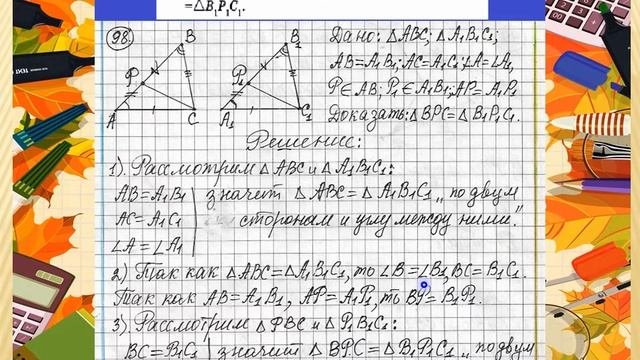 =△B₁P₁C₁.
98
B
B₁
P
P₁
A
C
A₁
C₁
Дано: △ABC; △A₁B₁C₁;
AB=A₁B₁; AC=A₁C₁; ∠A=∠A₁,
P∈AB; P₁∈A₁B₁; AP=A₁P₁
Доказать: △BPC=△B₁P₁C₁.
Решение:
1). Рассмотрим △ABC и △A₁B₁C₁:
AB=A₁B₁ | значит △ABC=△A₁B₁C₁ „по двум
AC=A₁C₁ | сторонам и углу между ними".
∠A=∠A₁
2) Так как △ABC=△A₁B₁C₁, то ∠B=∠B₁, BC=B₁C₁.
Так как AB=A₁B₁, AP=A₁P₁, то BP=B₁P₁.
3). Рассмотрим △PBC и △P₁B₁C₁:
BC=B₁C₁ | значит △BPC=△B₁P₁C₁ „по двум